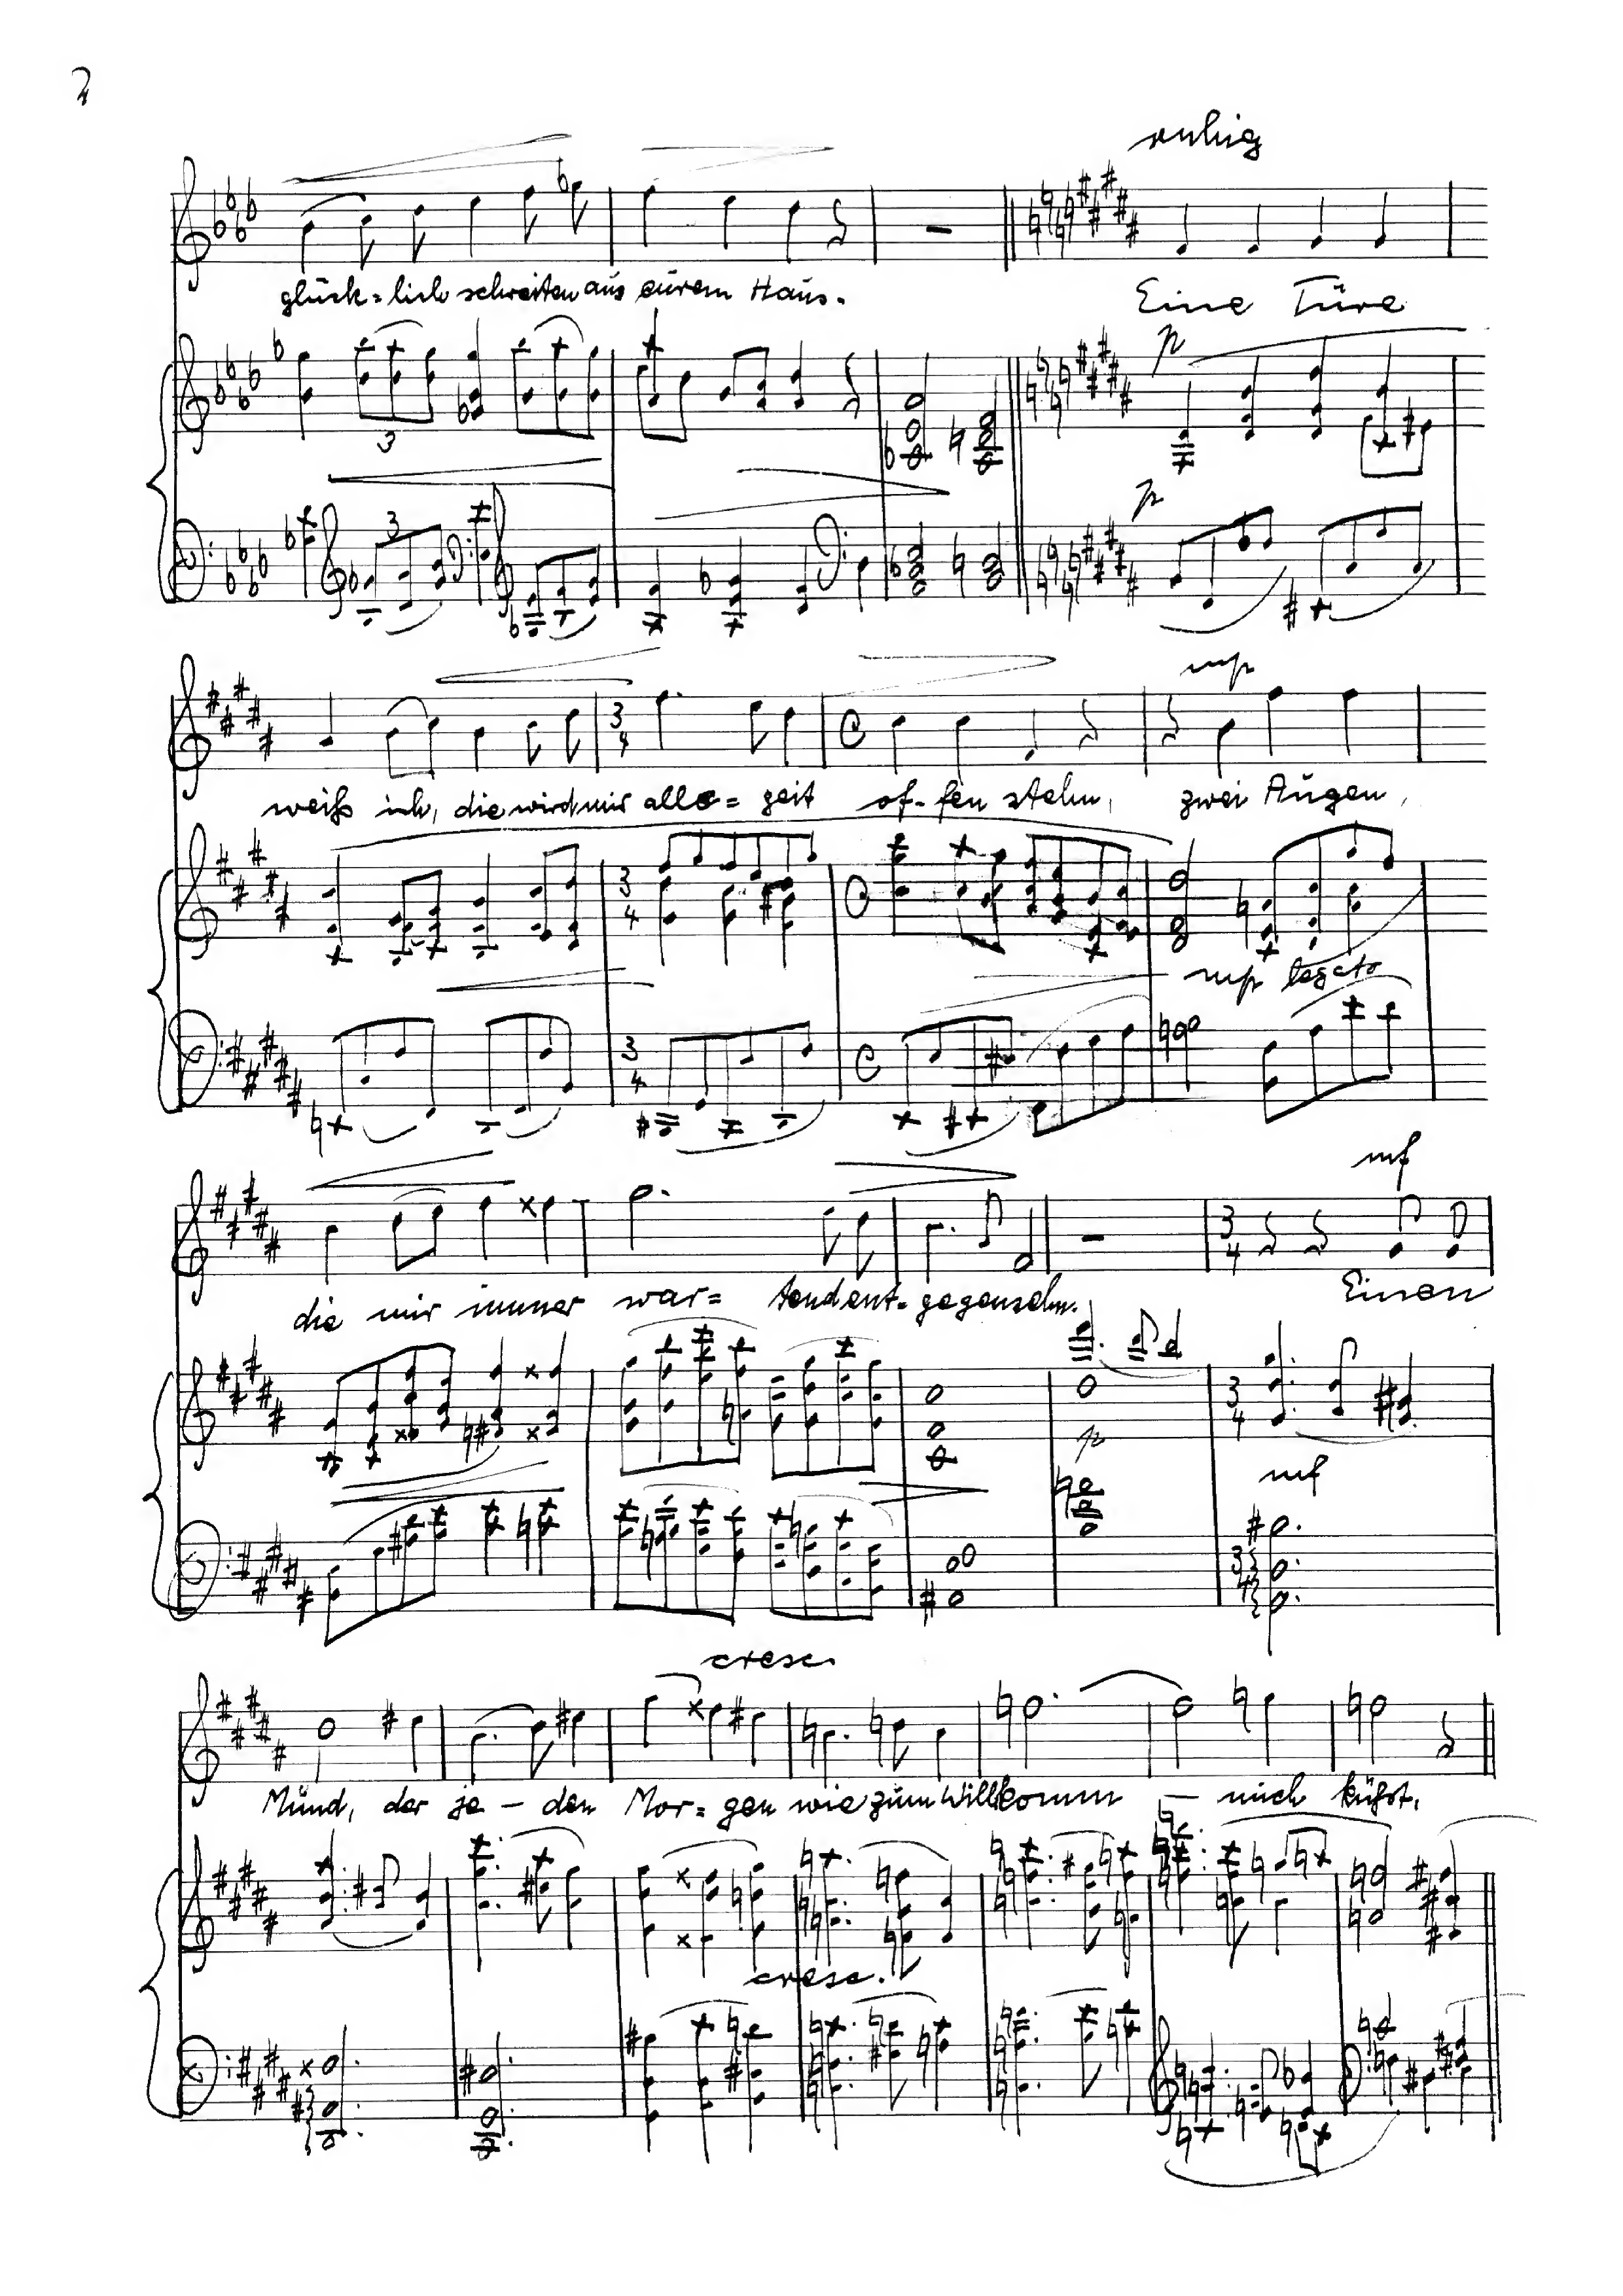 2
ruhig
glück=lich schreiten aus eurem Haus.
Eine Türe
p
3
3
p
mp
3/4
weiß ich, die wird mir alle=zeit of-fen stehn, zwei Augen,
3/4
mp legato
3/4
mf
3/4
die mir immer war= tend ent-gegensehn. Einen
3/4
p
mf
3/4
cresc.
Mund, der je-den Mor=gen wie zum Willkomm — mich küßt,
cresc.